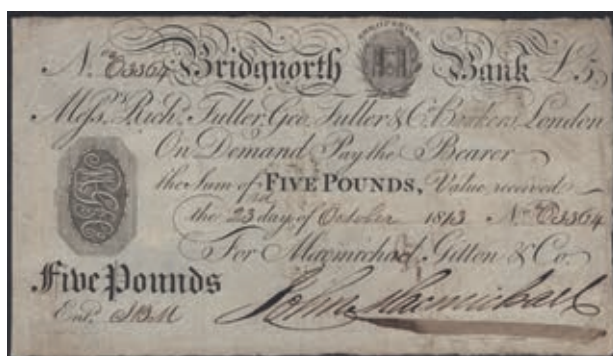 SHROPSHIRE
No. C3364 Bridgnorth Bank £5
Messrs. Richd. Fuller, Geo. Fuller & Co. Bankers, London
On Demand Pay the Bearer
the Sum of FIVE POUNDS, Value received
the 23rd day of October 1813 No. C3364
For Macmichael, Gitton & Co.
Five Pounds
Entd. JBM
John Macmichael